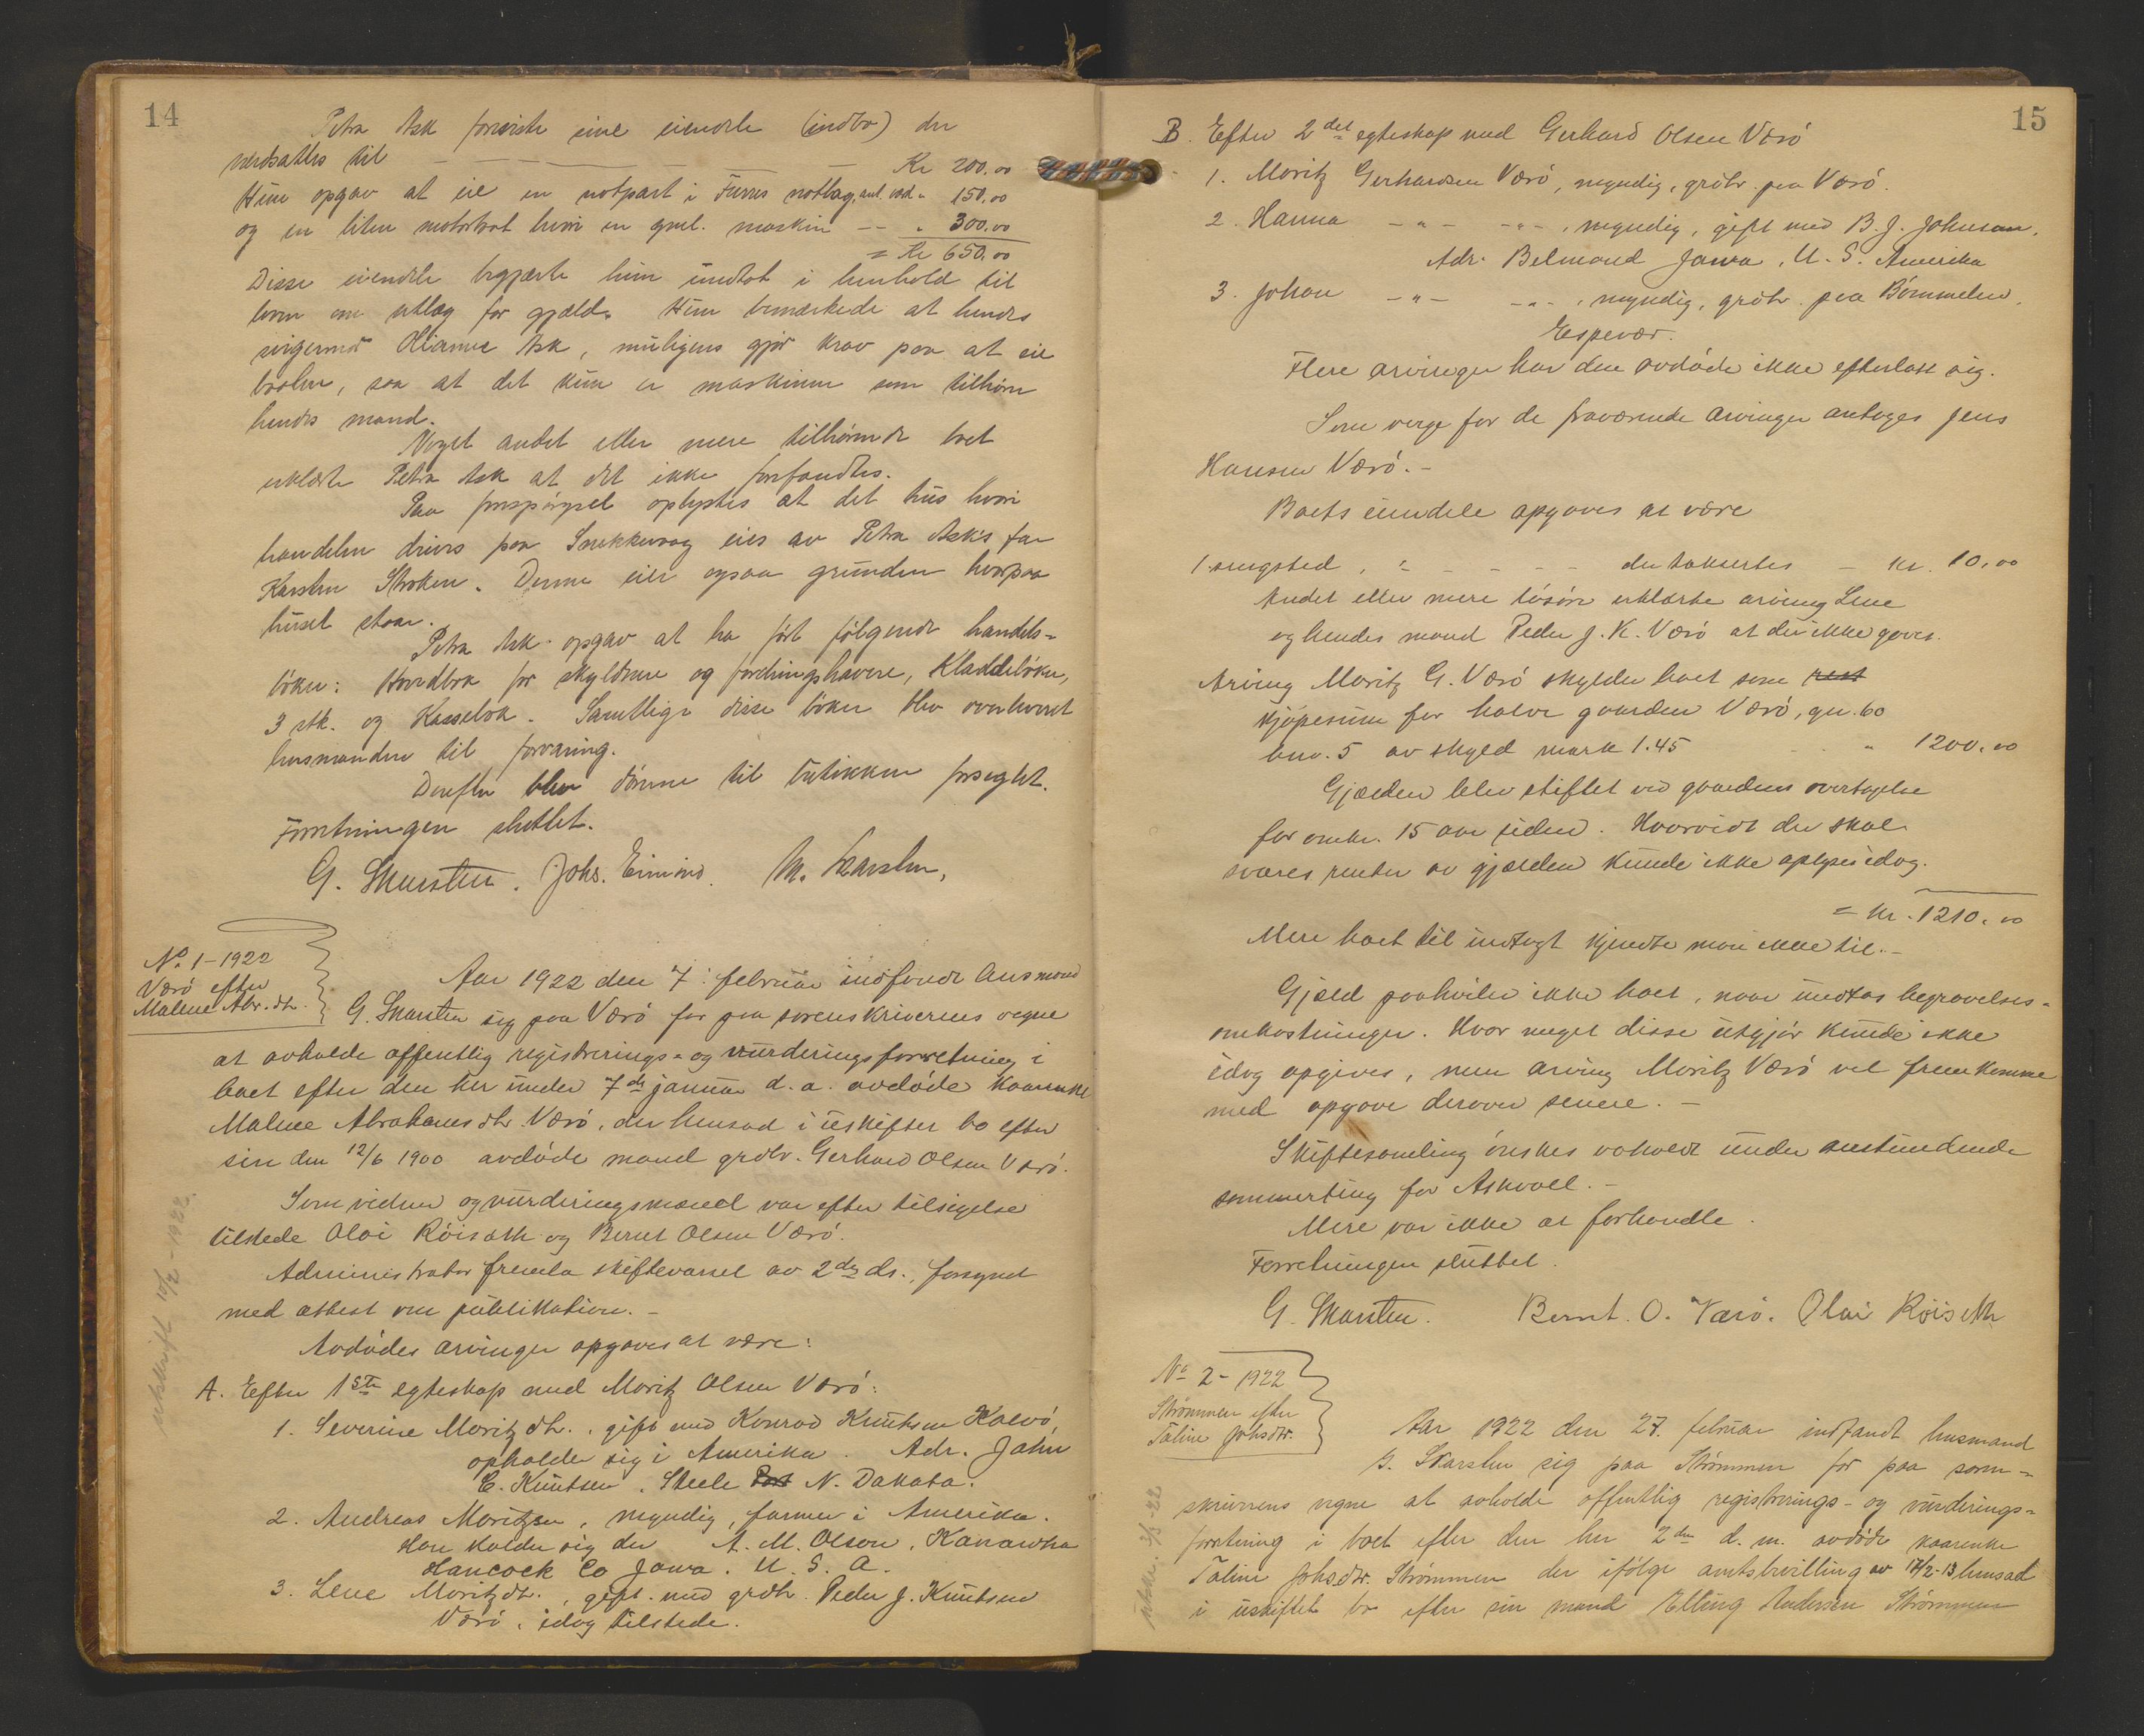 14
Petra Ask foreviste sine eiendele (indbo) der
verdsattes til — — Kr 200.00
Hun opgav at eie en notpart i Furres notlag, ant. vd. " 150.00
og en liten motorbaat hvori en gml. maskin — — " 300.00
= Kr 650.00
Disse eiendele begjærte hun undtat i henhold til
loven om utlæg for gjæld. Hun bemerkede at hendes
svigermor Olianne Ask, muligens gjør krav paa at eie
baaten, saa at det kun er maskinen som tilhører
hendes mand.
Noget andet eller mere tilhørende boet
erklærte Petra Ask at det ikke forefandtes.
Paa forespørgsel oplystes at det hus hvori
handelen drives paa Snekkevaag eies av Petra Asks far
Karsten Stroken. Denne eier ogsaa grunden hvorpaa
huset staar.
Petra Ask opgav at ha ført følgende handels-
bøker: Hovedbok for skyldnere og fordringshavere, Kladdebøker,
3 stk. og Kassebok. Samtlige disse bøker blev overleveret
lensmanden til forvaring.
Derefter blev dørene til butikken forseglet.
Forretningen sluttet.
G. Skarsten. Johs. Eimind. M. Karsten.
No 1 - 1922
Værö efter
Malene Abr. dtr.
Aar 1922 den 7. februar indfandt lensmand
G. Skarsten sig paa Værö for paa sorenskriverens vegne
at avholde offentlig registrerings- og vurderingsforretning i
boet efter den her under 7de januar d. a. avdöde kaarenke
Malene Abrahamsdtr. Værö, der hensad i uskiftet bo efter
sin den 12/6 1900 avdöde mand grdbr. Gerhard Olsen Værö.
Som vidner og vurderingsmænd var efter tilsigelse
tilstede Olai Röiseth og Bernt Olsen Værö.
Administrator fremla skiftevarsel av 2den ds., forsynet
med attest om publikation. -
Avdödes arvinger opgaves at være:
A. Efter 1ste egteskap med Moritz Olsen Værö:
1. Severine Moritzdtr., gift med Konrad Knutsen Kalvö,
opholder sig i Amerika. Adr. John
C. Knutsen, Steele Post N. Dakota.
2. Andreas Moritzsen, myndig, farmer i Amerika.
Han kalder sig der A. M. Olson, Kanawha
Hancock Co Jowa. U. S. A.
3. Lene Moritzdtr., gift med grdbr. Peder J. Knutsen
Værö, idag tilstede.
utskrift 10/2 - 1922.
15
B. Efter 2det egteskap med Gerhard Olsen Værö
1. Moritz Gerhardsen Værö, myndig, grdbr. paa Værö.
2. Hanna - " - - " - , myndig, gift med B. J. Johnson,
Adr. Belmond Jowa, U. S. Amerika
3. Johan - " - - " - , myndig, grdbr. paa Bömmelen,
Espevær.
Flere arvinger har den avdöde ikke efterlatt sig.
Som verge for de fraværende arvinger antoges Jens
Hansen Værö. -
Boets eiendele opgaves at være
1 sengsted, - - - - - der taksertes - kr. 10,00
Andet eller mere lösöre erklærte arving Lene
og hendes mand Peder J. K. Værö at der ikke gaves.
Arving Moritz G. Værö skylder boet som rest
kjöpesum for halve gaarden Værö, gn. 60
bnr. 5 av skyld mark 1.45 - - " 1200,00
Gjælden blev stiftet ved gaardens overtagelse
for omkr. 15 aar siden. Hvorvidt der skal
svares renter av gjælden kunde ikke oplyses idag.
= kr. 1210,00
Mere boet til indtægt kjendte man ikke til. -
Gjæld paahviler ikke boet, naar undtas begravelses-
omkostninger. Hvor meget disse utgjör kunde ikke
idag opgives, men arving Moritz Værö vil fremkomme
med opgave derover senere. -
Skiftesamling önskes avholdt under anstundende
sommerting for Askvoll. -
Mere var ikke at forhandle.
Forretningen sluttet.
G. Skarsten. Bernt. O. Værö. Olai Röiseth
No 2 - 1922
Strømmen efter
Taline Johsdtr.
Aar 1922 den 27. februar indfandt lensmand
G. Skarsten sig paa Strømmen for paa soren-
skriverens vegne at avholde offentlig registrerings- og vurderings-
forretning i boet efter den her 2den d. m. avdøde kaarenke
Taline Johsdtr. Strømmen der ifølge amtsbevilling av 17/2-13 hensad
i uskiftet bo efter sin mand Elling Andersen Strømmen
utskr. 3/3 - 22